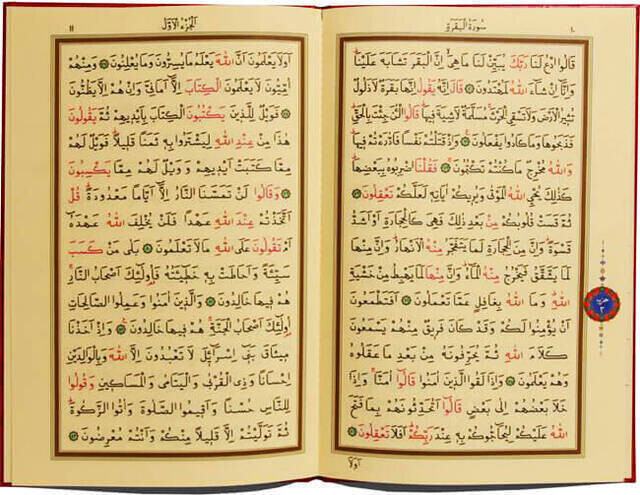 ١٠
سورة البقرة
قَالُوا ادْعُ لَنَا رَبَّكَ يُبَيِّنْ لَنَا مَا هِيَۙ اِنَّ الْبَقَرَ تَشَابَهَ عَلَيْنَاۜ
وَاِنَّٓا اِنْ شَٓاءَ اللّٰهُ لَمُهْتَدُونَ قَالَ اِنَّهُ يَقُولُ اِنَّهَا بَقَرَةٌ لَا ذَلُولٌ
تُثِيرُ الْاَرْضَ وَلَا تَسْقِي الْحَرْثَۚ مُسَلَّمَةٌ لَا شِيَةَ فِيهَاۜ قَالُوا الْـٰٔنَ جِئْتَ بِالْحَقِّۜ
فَذَبَحُوهَا وَمَا كَادُوا يَفْعَلُونَ وَاِذْ قَتَلْتُمْ نَفْسًا فَادّٰرَءْتُمْ فِيهَاۜ
وَاللّٰهُ مُخْرِجٌ مَا كُنْتُمْ تَكْتُمُونَۚ فَقُلْنَا اضْرِبُوهُ بِبَعْضِهَاۜ
كَذٰلِكَ يُحْيِي اللّٰهُ الْمَوْتٰى وَيُرِيكُمْ اٰيَاتِهِ لَعَلَّكُمْ تَعْقِلُونَ
ثُمَّ قَسَتْ قُلُوبُكُمْ مِنْ بَعْدِ ذٰلِكَ فَهِيَ كَالْحِجَارَةِ اَوْ اَشَدُّ
قَسْوَةًۜ وَاِنَّ مِنَ الْحِجَارَةِ لَمَا يَتَفَجَّرُ مِنْهُ الْاَنْهَارُۜ وَاِنَّ مِنْهَا
لَمَا يَشَّقَّقُ فَيَخْرُجُ مِنْهُ الْمَٓاءُۜ وَاِنَّ مِنْهَا لَمَا يَهْبِطُ مِنْ خَشْيَةِ
اللّٰهِۜ وَمَا اللّٰهُ بِغَافِلٍ عَمَّا تَعْمَلُونَ اَفَتَطْمَعُونَ
اَنْ يُؤْمِنُوا لَكُمْ وَقَدْ كَانَ فَرِيقٌ مِنْهُمْ يَسْمَعُونَ
كَلَامَ اللّٰهِ ثُمَّ يُحَرِّفُونَهُ مِنْ بَعْدِ مَا عَقَلُوهُ
وَهُمْ يَعْلَمُونَ وَاِذَا لَقُوا الَّذِينَ اٰمَنُوا قَالُٓوا اٰمَنَّاۚ وَاِذَا
خَلَا بَعْضُهُمْ اِلٰى بَعْضٍ قَالُٓوا اَتُحَدِّثُونَهُمْ بِمَا فَتَحَ
اللّٰهُ عَلَيْكُمْ لِيُحَٓاجُّوكُمْ بِهِ عِنْدَ رَبِّكُمْۜ اَفَلَا تَعْقِلُونَ
اَوَلَا
الجزء الاول
١١
اَوَلَا يَعْلَمُونَ اَنَّ اللّٰهَ يَعْلَمُ مَا يُسِرُّونَ وَمَا يُعْلِنُونَ وَمِنْهُمْ
اُمِّيُّونَ لَا يَعْلَمُونَ الْكِتَابَ اِلَّٓا اَمَانِيَّ وَاِنْ هُمْ اِلَّا يَظُنُّونَ
فَوَيْلٌ لِلَّذِينَ يَكْتُبُونَ الْكِتَابَ بِاَيْدِيهِمْ ثُمَّ يَقُولُونَ
هٰذَا مِنْ عِنْدِ اللّٰهِ لِيَشْتَرُوا بِهِ ثَمَنًا قَلِيلًاۜ فَوَيْلٌ لَهُمْ
مِمَّا كَتَبَتْ اَيْدِيهِمْ وَوَيْلٌ لَهُمْ مِمَّا يَكْسِبُونَ
وَقَالُوا لَنْ تَمَسَّنَا النَّارُ اِلَّٓا اَيَّامًا مَعْدُودَةًۜ قُلْ
اَتَّخَذْتُمْ عِنْدَ اللّٰهِ عَهْدًا فَلَنْ يُخْلِفَ اللّٰهُ عَهْدَهُ
اَمْ تَقُولُونَ عَلَى اللّٰهِ مَا لَا تَعْلَمُونَ بَلٰى مَنْ كَسَبَ
سَيِّئَةً وَاَحَاطَتْ بِهِ خَطِيئَتُهُ فَاُولٰٓئِكَ اَصْحَابُ النَّارِۚ
هُمْ فِيهَا خَالِدُونَ وَالَّذِينَ اٰمَنُوا وَعَمِلُوا الصَّالِحَاتِ
اُولٰٓئِكَ اَصْحَابُ الْجَنَّةِۚ هُمْ فِيهَا خَالِدُونَ وَاِذْ اَخَذْنَا
مِيثَاقَ بَنِٓي اِسْرَٓائِيلَ لَا تَعْبُدُونَ اِلَّا اللّٰهَ وَبِالْوَالِدَيْنِ
اِحْسَانًا وَذِي الْقُرْبٰى وَالْيَتَامٰى وَالْمَسَاكِينِ وَقُولُوا
لِلنَّاسِ حُسْنًا وَاَقِيمُوا الصَّلٰوةَ وَاٰتُوا الزَّكٰوةَۜ
ثُمَّ تَوَلَّيْتُمْ اِلَّا قَلِيلًا مِنْكُمْ وَاَنْتُمْ مُعْرِضُونَ